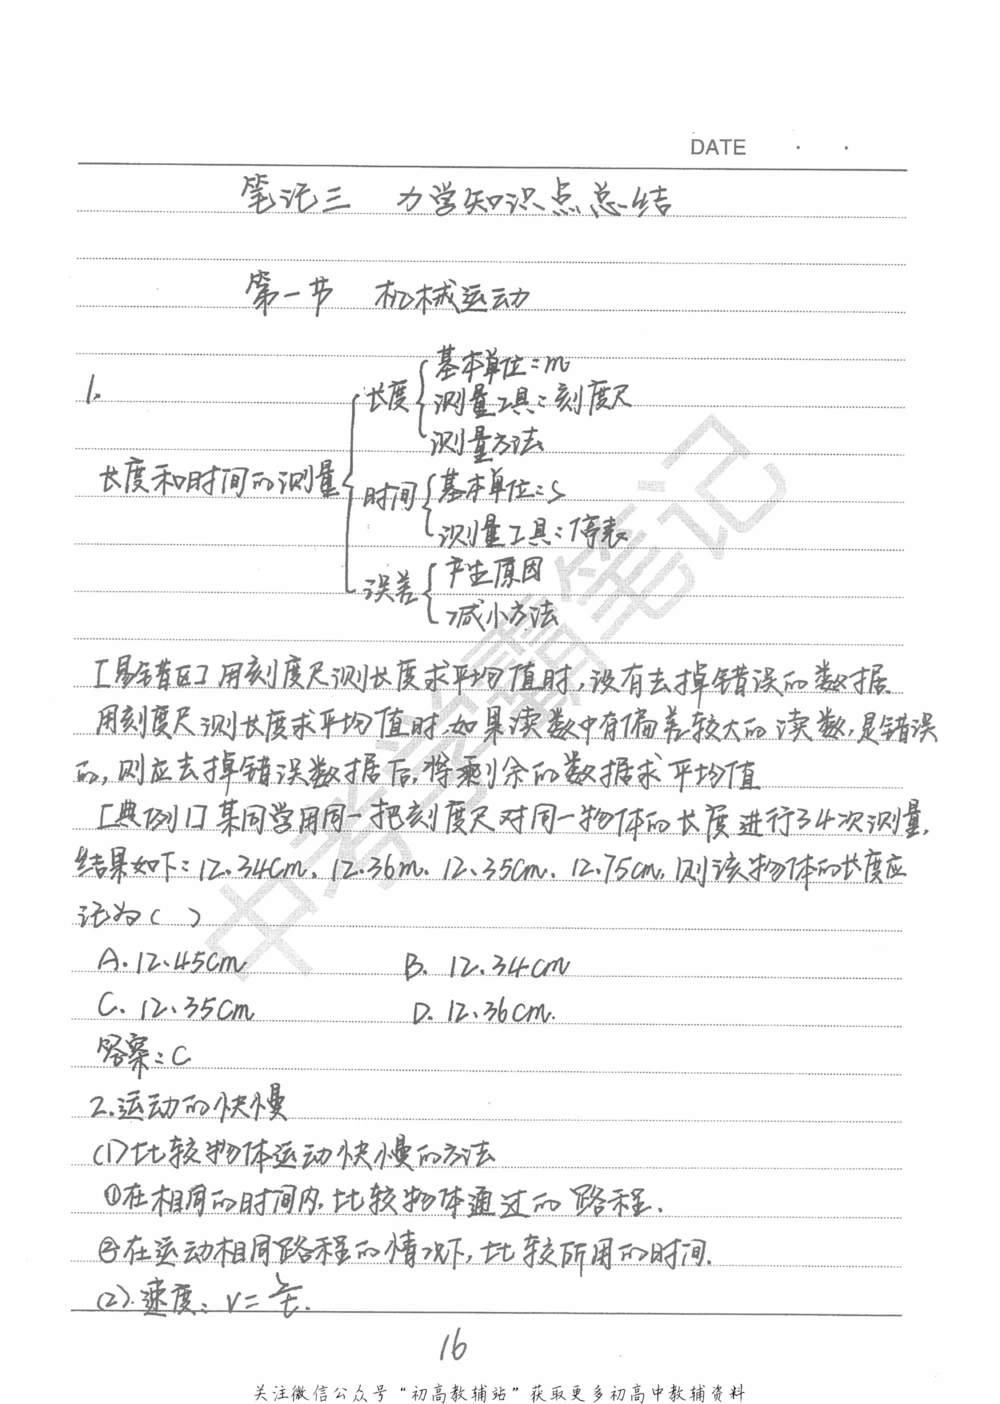 DATE · ·
笔记三 力学知识点总结
第一节 机械运动
1.
长度和时间的测量
长度
基本单位:m
测量工具:刻度尺
测量方法
时间
基本单位:s
测量工具:停表
误差
产生原因
减小方法
[易错区]用刻度尺测长度求平均值时,没有去掉错误的数据.
用刻度尺测长度求平均值时,如果读数中有偏差较大的读数,是错误
的,则应去掉错误数据后,将剩余的数据求平均值
[典例1]某同学用同一把刻度尺对同一物体的长度进行了4次测量,
结果如下:12.34cm、12.36m、12.35cm、12.75cm,则该物体的长度应
记为( )
A.12.45cm B. 12.34cm
C. 12.35cm D. 12.36cm.
答案:C
2.运动的快慢
(1)比较物体运动快慢的方法
①在相同的时间内,比较物体通过的路程.
②在运动相同路程的情况下,比较所用的时间.
(2).速度: v=s/t.
16
关注微信公众号“初高教辅站”获取更多初高中教辅资料
中考学霸笔记